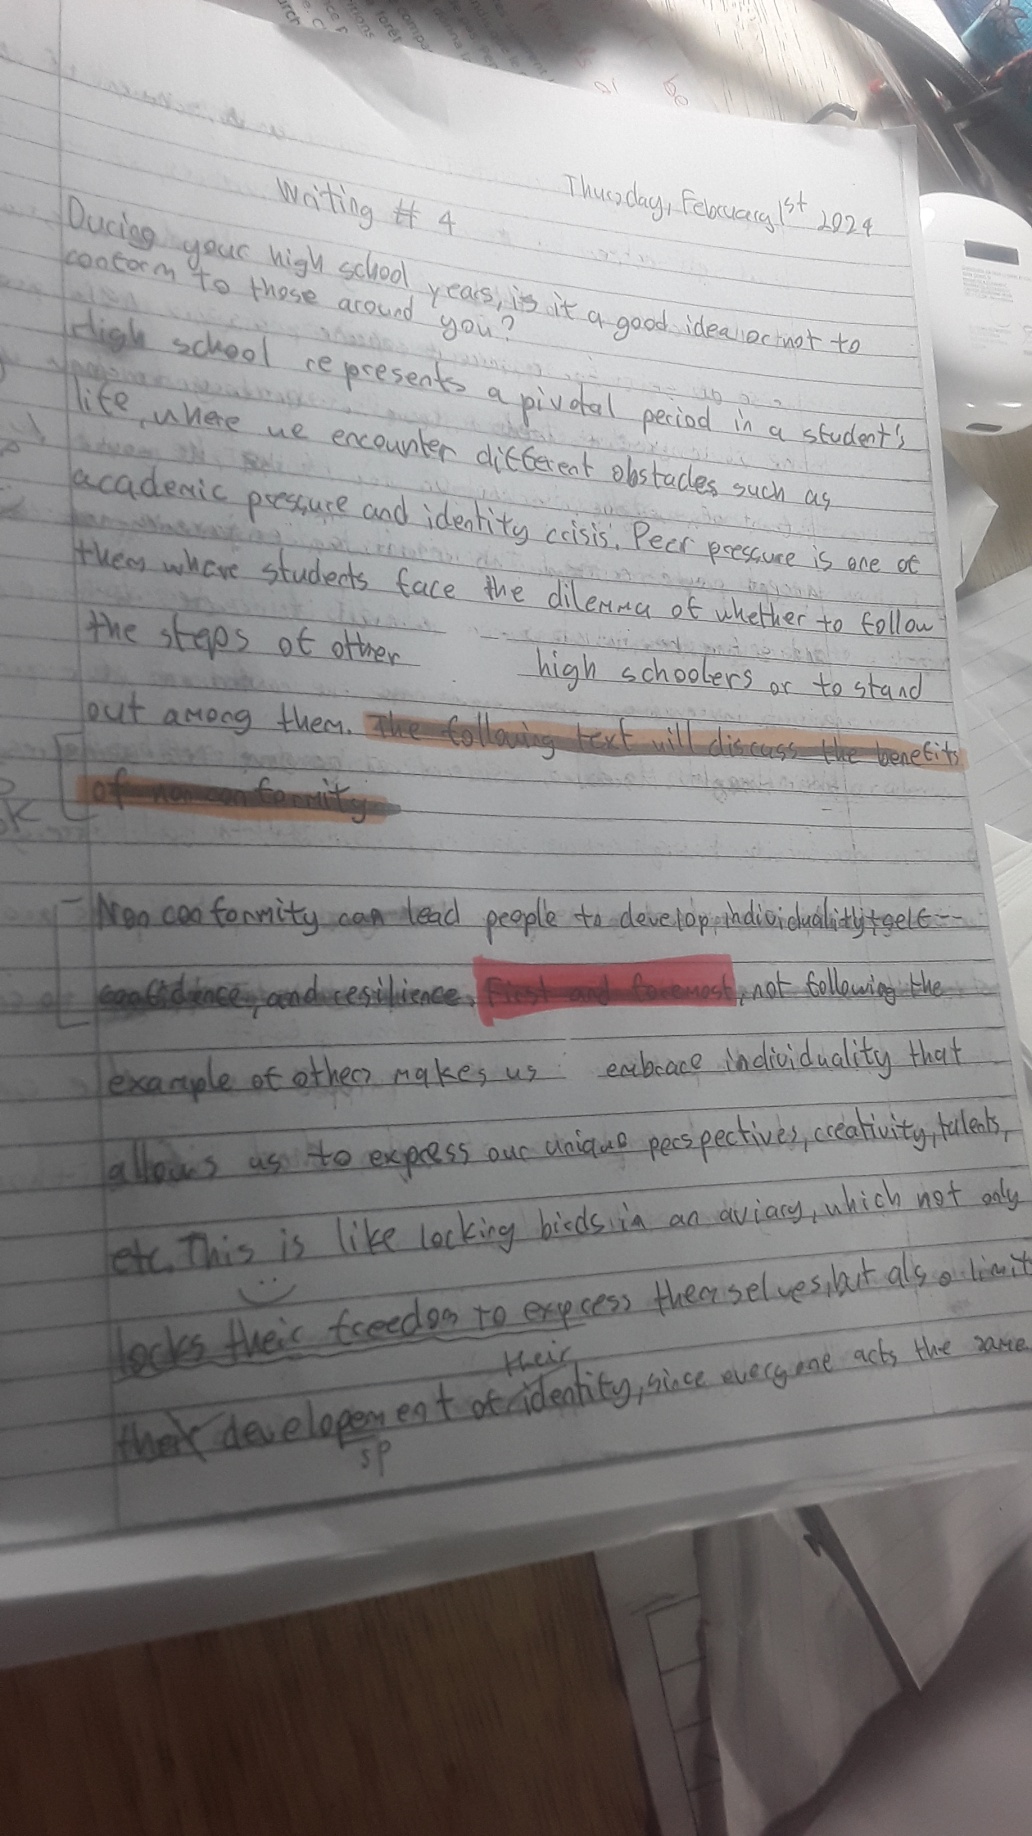 Writing # 4
Thursday, February 1st 2024
During your high school years, is it a good idea or not to
conform to those around you?
High school represents a pivotal period in a student's
life, where we encounter different obstacles such as
academic pressure and identity crisis. Peer pressure is one of
them where students face the dilemma of whether to follow
the steps of other high schoolers or to stand
out among them. The following text will discuss the benefits
of non conformity
Non conformity can lead people to develop individuality, self-
confidence, and resilience. First and foremost, not following the
example of others makes us embrace individuality that
allows us to express our unique perspectives, creativity, talents,
etc. This is like locking birds in an aviary, which not only
locks their freedom to express themselves, but also limit
their
their developement of identity, since everyone acts the same
sp